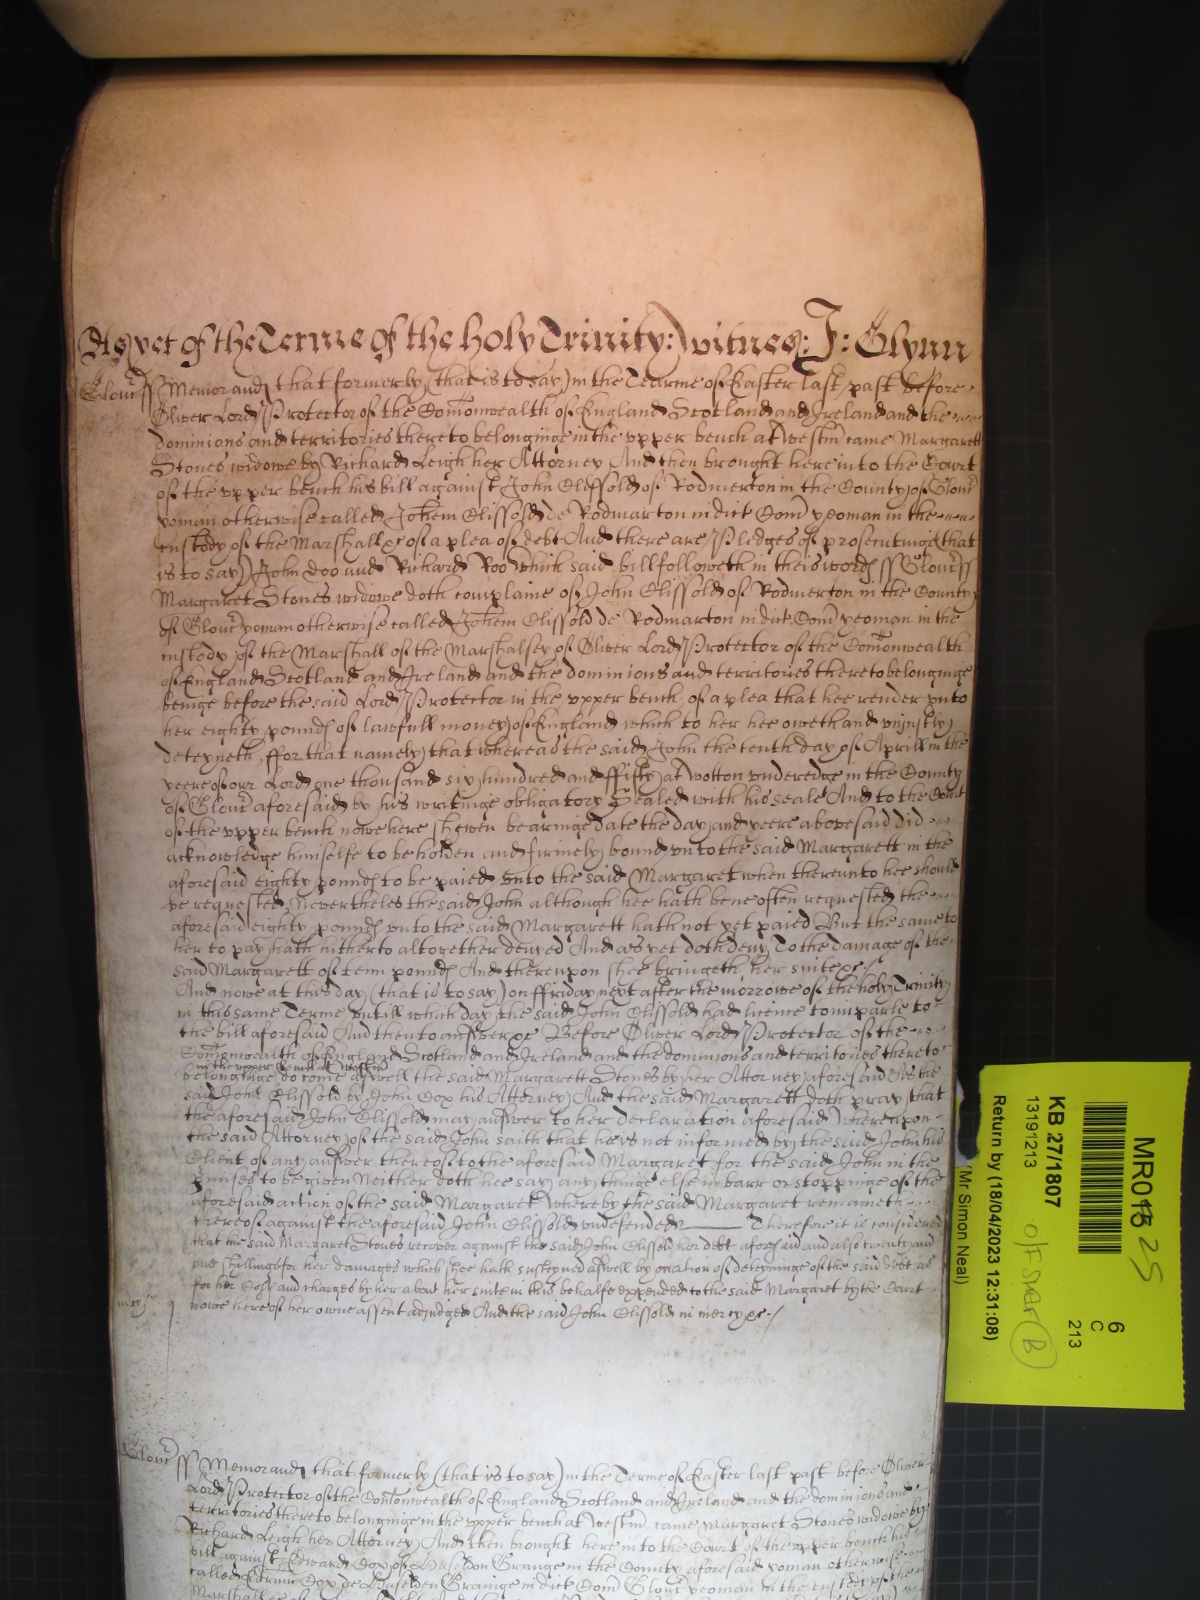 As yet of the Terme of the holy Trinity: witnes: J: Glynn
Glouc ss Memorand that formerly (that is to say) in the Tearme of Easter last past before
Oliver Lord Protector of the Comonwealth of England Scotland and Ireland and the
dominions and territories thereto belonginge in the upper bench at Westm came Margarett
Stones widowe by Richard Leigh her Attorney And then brought here into the Court
of the upper bench his bill against John Clissold of Rodmerton in the County of Glouc
yoman otherwise called Johem Clissold de Rodmarton in dict Com yeoman in the
custody of the Marshall &c of a plea of debt And there are Pledges of prosecutinge (that
is to say) John Doo and Richard Roo Which said bill followeth in theis words ss Glouc ss
Margaret Stones widowe doth complaine of John Clissold of Rodmerton in the County
of Glouc yoman otherwise called Johem Clissold de Rodmarton in dict Com yeoman in the
custody of the Marshall of the Marshalsey of Oliver Lord Protector of the Comonwealth
of England Scotland and Ireland and the dominions and territories thereto belonginge
beinge before the said Lord Protector in the upper bench of a plea that hee render unto
her eighty pounds of lawfull money of England which to her hee oweth and uniustly
deteyneth ffor that namely that whereas the said John the tenth day of Aprill in the
yeere of our Lord one thousand six hundred and ffifty at Wotton underedge in the County
of Glouc aforesaid by his writinge obligatory Sealed with his seale And to the Court
of the upper bench nowe here shewen bearinge date the day and yeere abovesaid did
acknowledge himselfe to be holden and firmely bound unto the said Margarett in the
aforesaid eighty pounds to be paied unto the said Margaret when thereunto hee should
be requested Nevertheles the said John although hee hath bene often requested the
aforesaid eighty pounds unto the said Margarett hath not yet paied But the same to
her to pay hath hitherto altogether denyed And as yet doth deny To the damage of the
said Margarett of tenn pounds And thereupon shee bringeth her suite &c /
And nowe at this day (that is to say) on ffriday next after the morrowe of the holy Trinity
in this same Terme untill which day the said John Clissold had licence to imparle to
the bill aforesaid And then to answer &c Before Oliver Lord Protector of the
Comonwealth of England Scotland and Ireland and the dominions and territories thereto
in the upper bench at Westm
belonginge do come aswell the said Margarett Stones by her Attorney aforesaid As the
said John Clissold by John Cox his Attorney And the said Margarett doth pray that
the aforesaid John Clissold may answer to her declaration aforesaid Whereupon
the said Attorney of the said John saith that he is not informed by the said John his
Client of any answer thereof to the aforesaid Margaret for the said John in the
pmises to be given Neither doth hee say any thinge else in barr or stoppinge of the
aforesaid action of the said Margaret whereby the said Margaret remaineth
thereof against the aforesaid John Clissold undefended Therefore it is considered
that the said Margaret Stones recover against the said John Clissold her debt aforesaid and also twenty and
one shillings for her damages which shee hath susteyned aswell by occation of deteyninge of the said debt as
for her Costs and charges by her about her suite in this behalfe expended to the said Margaret by the Court
nowe here of her owne assent adjudged And the said John Clissold in mercy &c /
Glouc ss Memorand that formerly (that is to say) in the Terme of Easter last past before Oliver
Lord Protector of the Comonwealth of England Scotland and Ireland and the dominions and
territories thereto belonginge in the upper bench at Westm came Margaret Stones widowe by
Richard Leigh her Attorney And then brought here into the Court of the upper bench his
bill against Edward Cox of Grange in the County aforesaid yoman otherwise
called Cox de Grainge in dict Com Glouc yeoman in the custody of the
MR018 25
6
C
213
KB 27/1807
13191213
Return by (18/04/2023 12:31:08)
(Mr Simon Neal)
B